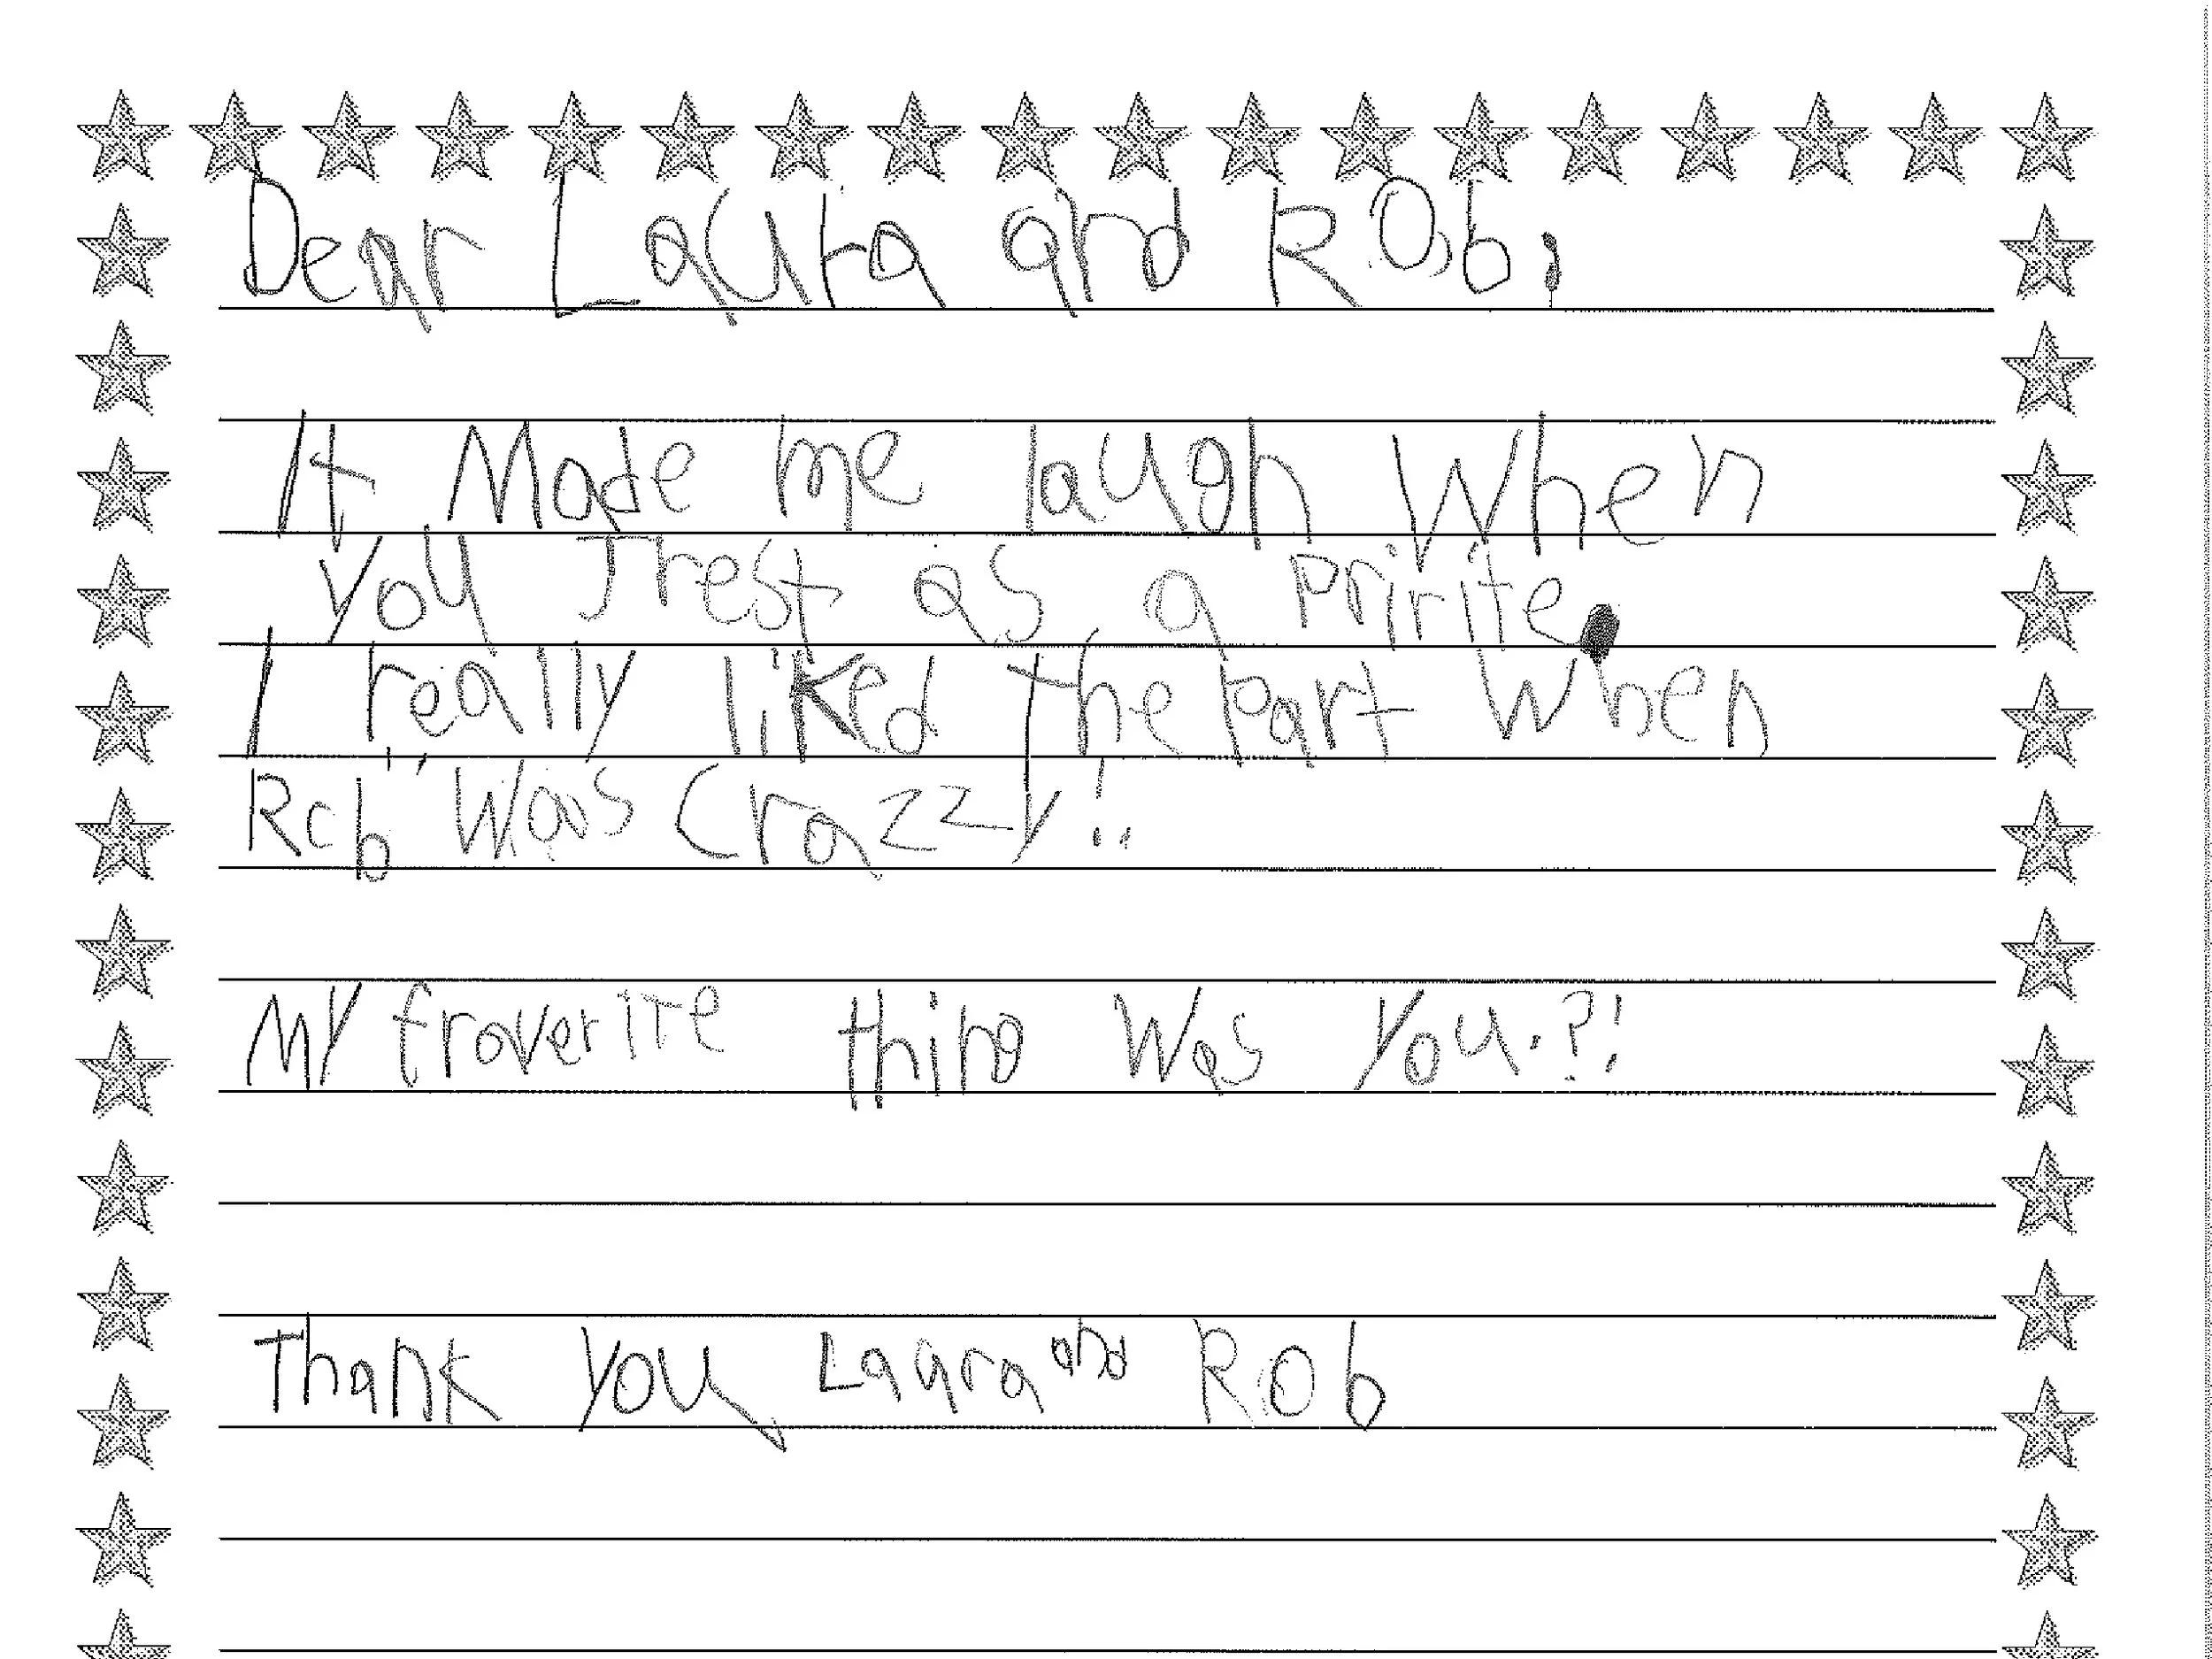 Dear Laura and Rob,
It Made me laugh When
you Jrest as a Pririte.
I really liked the Part When
Rob Was Crazzy!!
My froverite thing Was you.?!
Thank you Laura and Rob